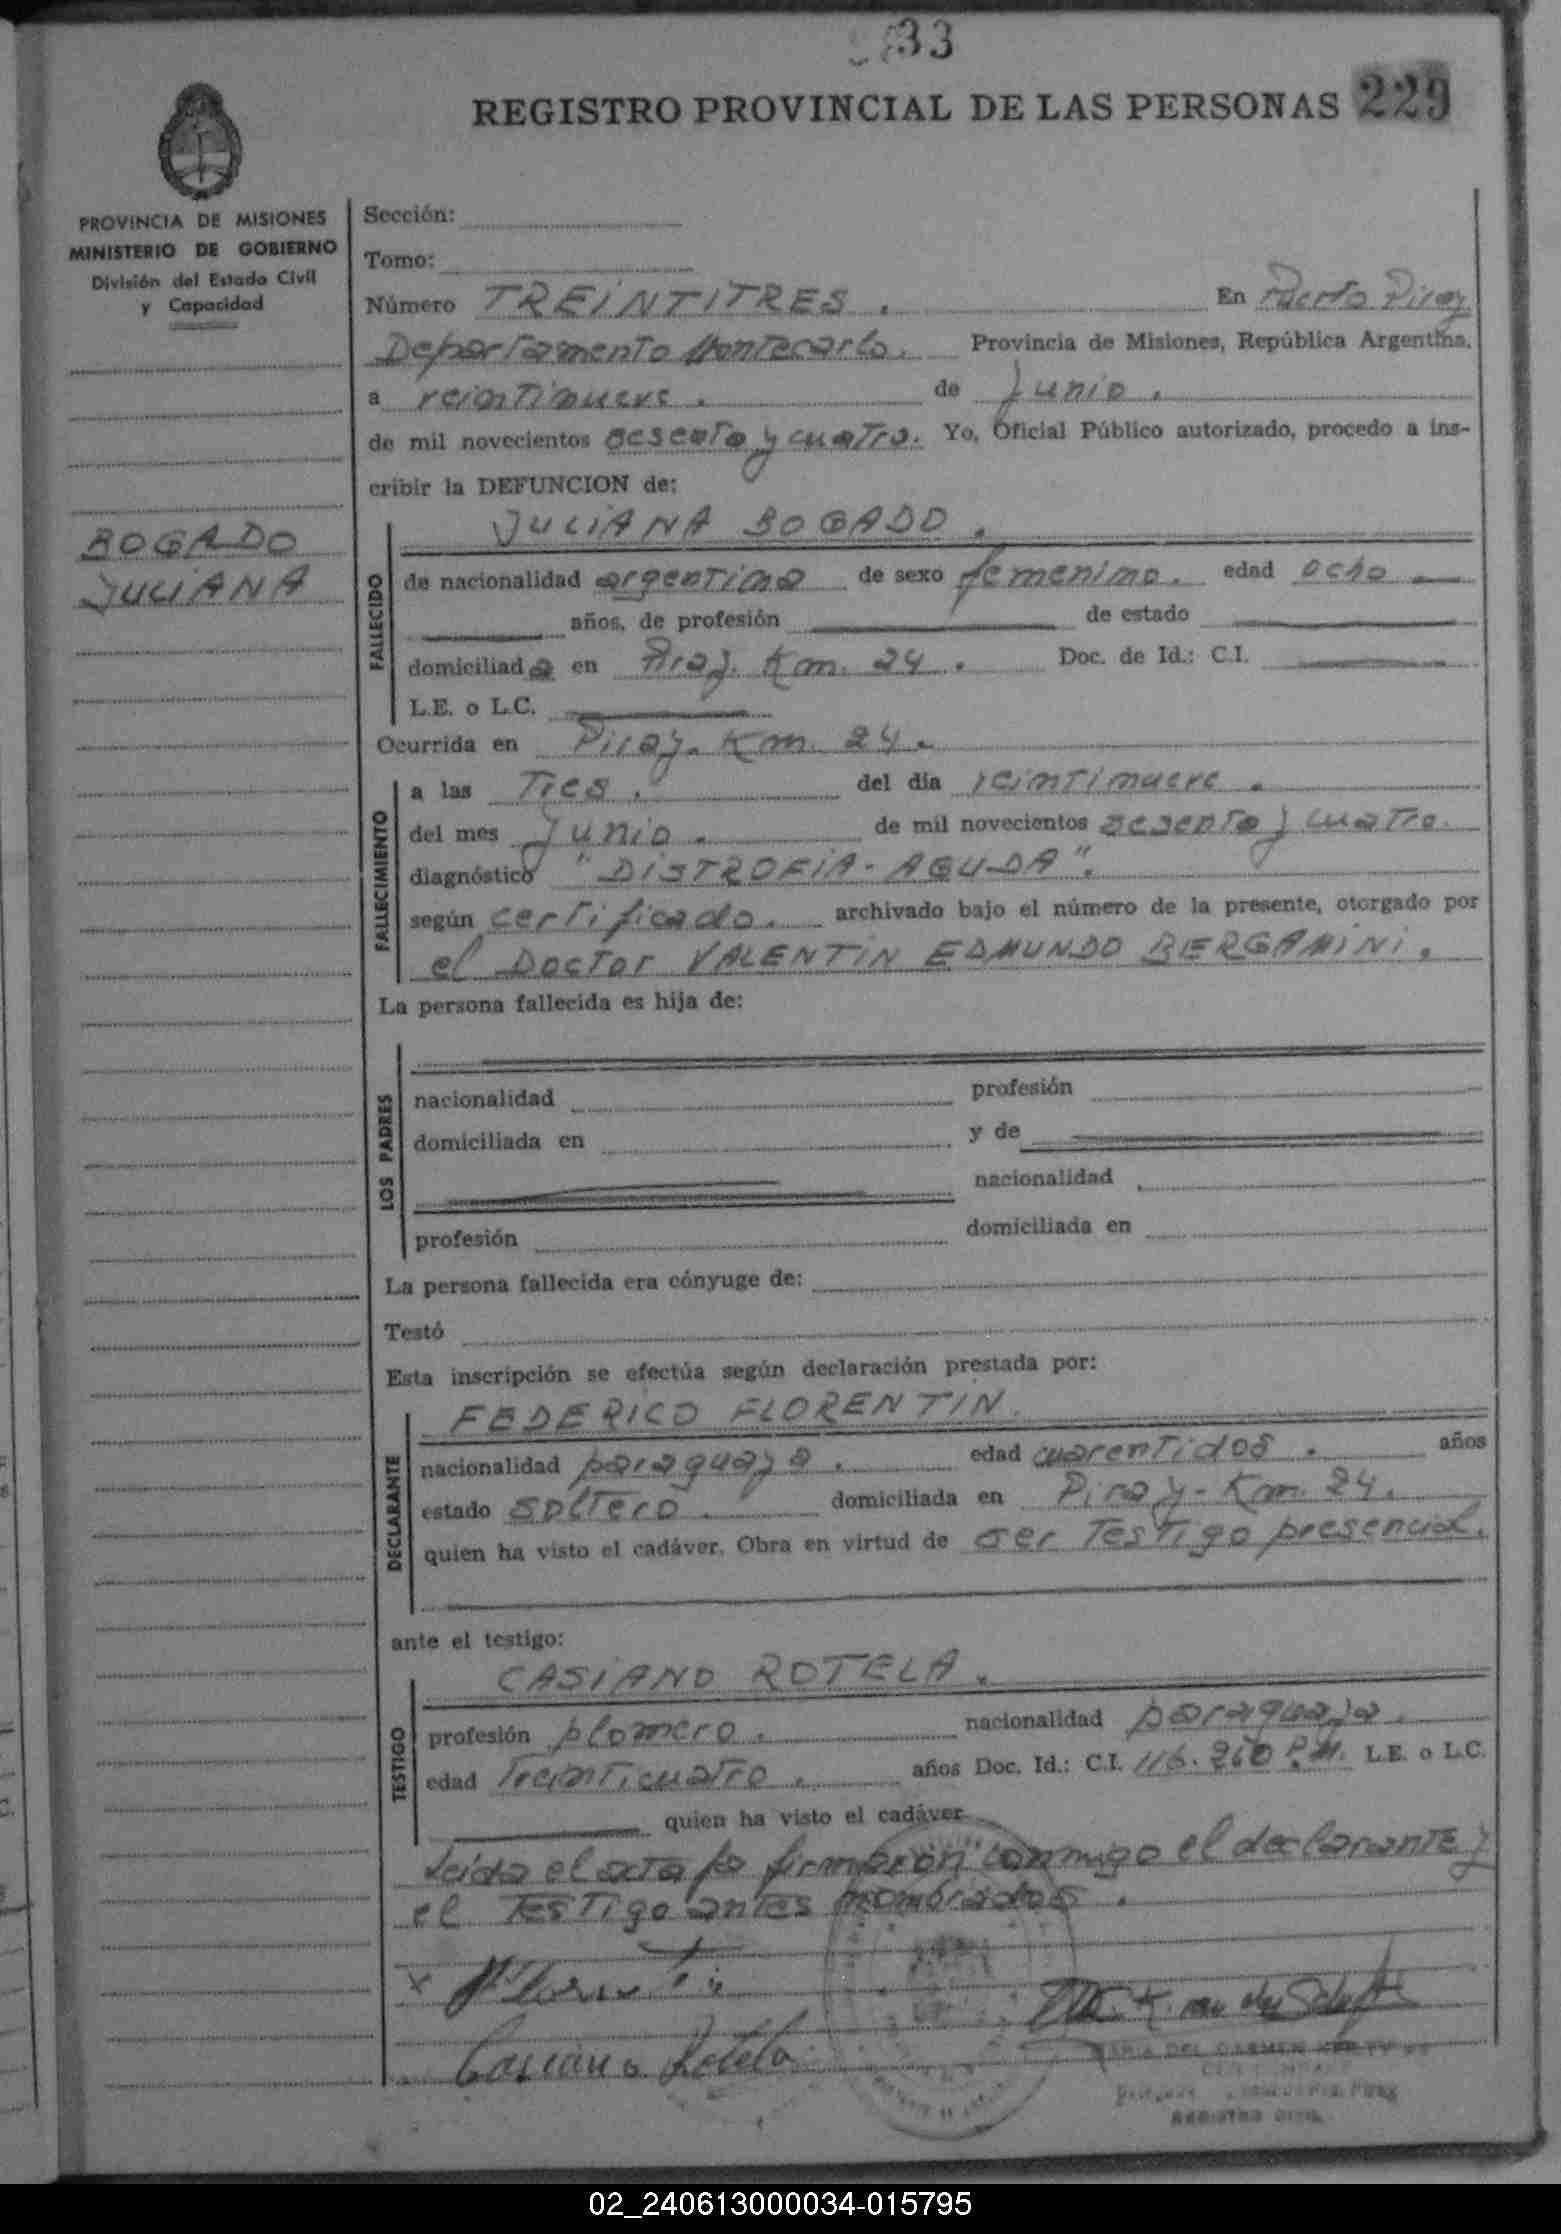 33
REGISTRO PROVINCIAL DE LAS PERSONAS 229
PROVINCIA DE MISIONES
MINISTERIO DE GOBIERNO
División del Estado Civil
y Capacidad
BOGADO
JULIANA
Sección:
Tomo:
Número TREINTITRES. En Puerto Piray
Departamento Montecarlo. Provincia de Misiones, República Argentina,
a veintinueve. de Junio.
de mil novecientos sesenta y cuatro. Yo, Oficial Público autorizado, procedo a ins-
cribir la DEFUNCION de:
JULIANA BOGADO.
FALLECIDO
de nacionalidad argentina de sexo femenino. edad ocho
años, de profesión de estado
domiciliada en Piray. Km. 24. Doc. de Id.: C.I.
L.E. o L.C.
Ocurrida en Piray. Km. 24.
FALLECIMIENTO
a las Tres. del día veintinueve.
del mes Junio. de mil novecientos sesenta y cuatro.
diagnóstico "DISTROFIA-AGUDA".
según certificado. archivado bajo el número de la presente, otorgado por
el Doctor VALENTIN EDMUNDO BERGAMINI.
La persona fallecida es hija de:
LOS PADRES
nacionalidad profesión
domiciliada en y de
nacionalidad
profesión domiciliada en
La persona fallecida era cónyuge de:
Testó
Esta inscripción se efectúa según declaración prestada por:
FEDERICO FLORENTIN.
DECLARANTE
nacionalidad paraguaya. edad cuarentidos. años
estado soltero. domiciliada en Piray-Km. 24.
quien ha visto el cadáver. Obra en virtud de ser Testigo presencial.
ante el testigo:
CASIANO ROTELA.
TESTIGO
profesión plomero. nacionalidad paraguaya.
edad Treinticuatro. años Doc. Id.: C.I. 116.260 P.M. L.E. o L.C.
quien ha visto el cadáver
Leida el acta la firmaron conmigo el declarante y
el Testigo antes nombrados.
x Florentin
Casiano Rotela
MARIA DEL CARMEN
REGISTRO CIVIL
02_240613000034-015795